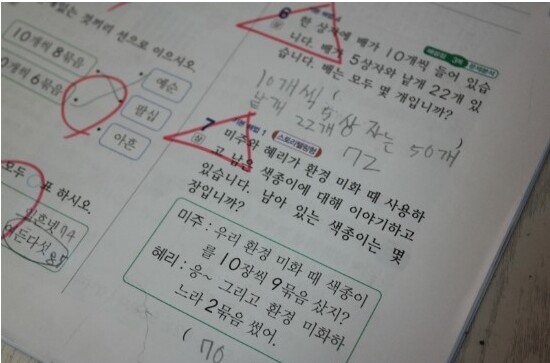 있는 것끼리 선으로 이으시오.
10개씩 8묶음
0개씩 6묶음
예순
팔십
아흔
모두
표 하시오.
일흔넷 74
여든다섯 85
6
한 상자에 배가 10개씩 들어 있습
니다. 배가 5상자와 낱개 22개 있
습니다. 배는 모두 몇 개입니까?
10개씩 5상자는 50개
낱개 22개
72
7
스토리텔링형
미주와 혜리가 환경 미화 때 사용하
고 남은 색종이에 대해 이야기하고
있습니다. 남아 있는 색종이는 몇
장입니까?
미주 : 우리 환경 미화 때 색종이
를 10장씩 9묶음 샀지?
혜리 : 응~ 그리고 환경 미화하
느라 2묶음 썼어.
( 70